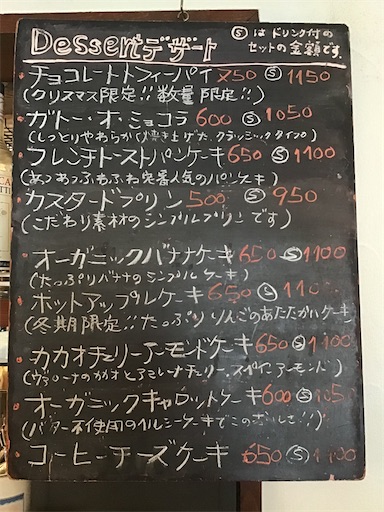 Dessertデザート
Ⓢはドリンク付の
セットの金額です。
チョコレートトフィーパイ 750 Ⓢ 1150
(クリスマス限定!!数量限定!!)
ガトー・オ・ショコラ 600 Ⓢ 1050
(しっとりやわらかく焼き上げた、クラッシックタイプ)
フレンチトーストパンケーキ 650 Ⓢ 1100
(あつあつふわふわ定番人気のパンケーキ)
カスタードプリン 500 Ⓢ 950
(こだわり素材のシンプルプリンです)
オーガニックバナナケーキ 650 Ⓢ 1100
(たっぷりバナナのシンプルケーキ)
ホットアップルケーキ 650 Ⓢ 110
(冬期限定!!たっぷりりんごのあたたかいケーキ)
カカオチェリーアーモンドケーキ 650 Ⓢ 1100
(ヴァローナのカカオとアマレーナチェリー、スペインアーモンド)
オーガニックキャロットケーキ 600 Ⓢ 105
(バター不使用のヘルシーケーキでこのおいしさ!!)
コーヒーチーズケーキ 650 Ⓢ 1100